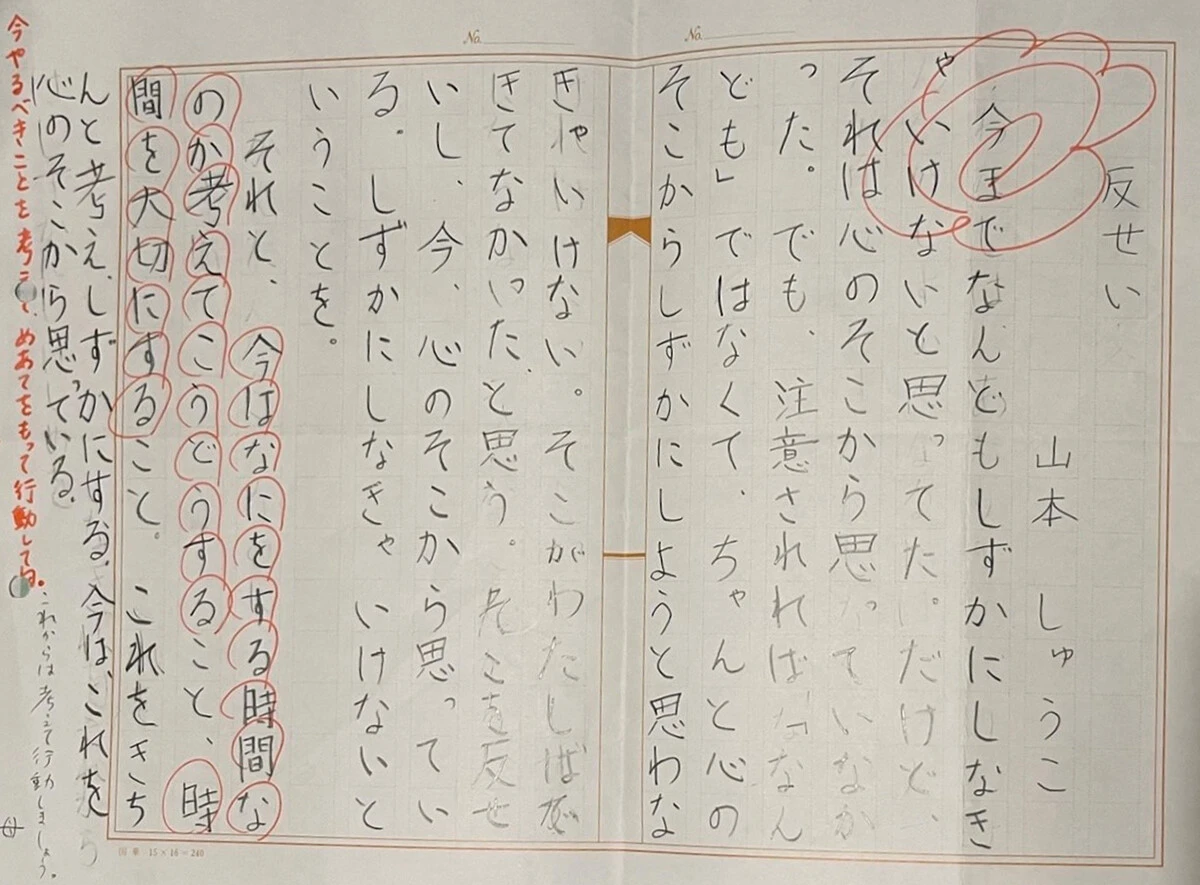 No.
No.
反せい
山本 しゅうこ
今までなんどもしずかにしなき
ゃいけないと思ってた。だけど、
それは心のそこから思っていなか
った。でも、注意されれば「なん
ども」ではなくて、ちゃんと心の
そこからしずかにしようと思わな
きゃいけない。そこがわたしはで
きてなかった、と思う。そこを反せ
いし、今、心のそこから思ってい
る。しずかにしなきゃいけないと
いうことを。
それと、今はなにをする時間な
のか考えてこうどうすること、時
間を大切にすること。これをきち
んと考え、しずかにする。今は、これを
心のそこから思っている。
今やるべきことを考えて、めあてをもって行動してね。
これからは考えて行動しましょう。
15×16=240